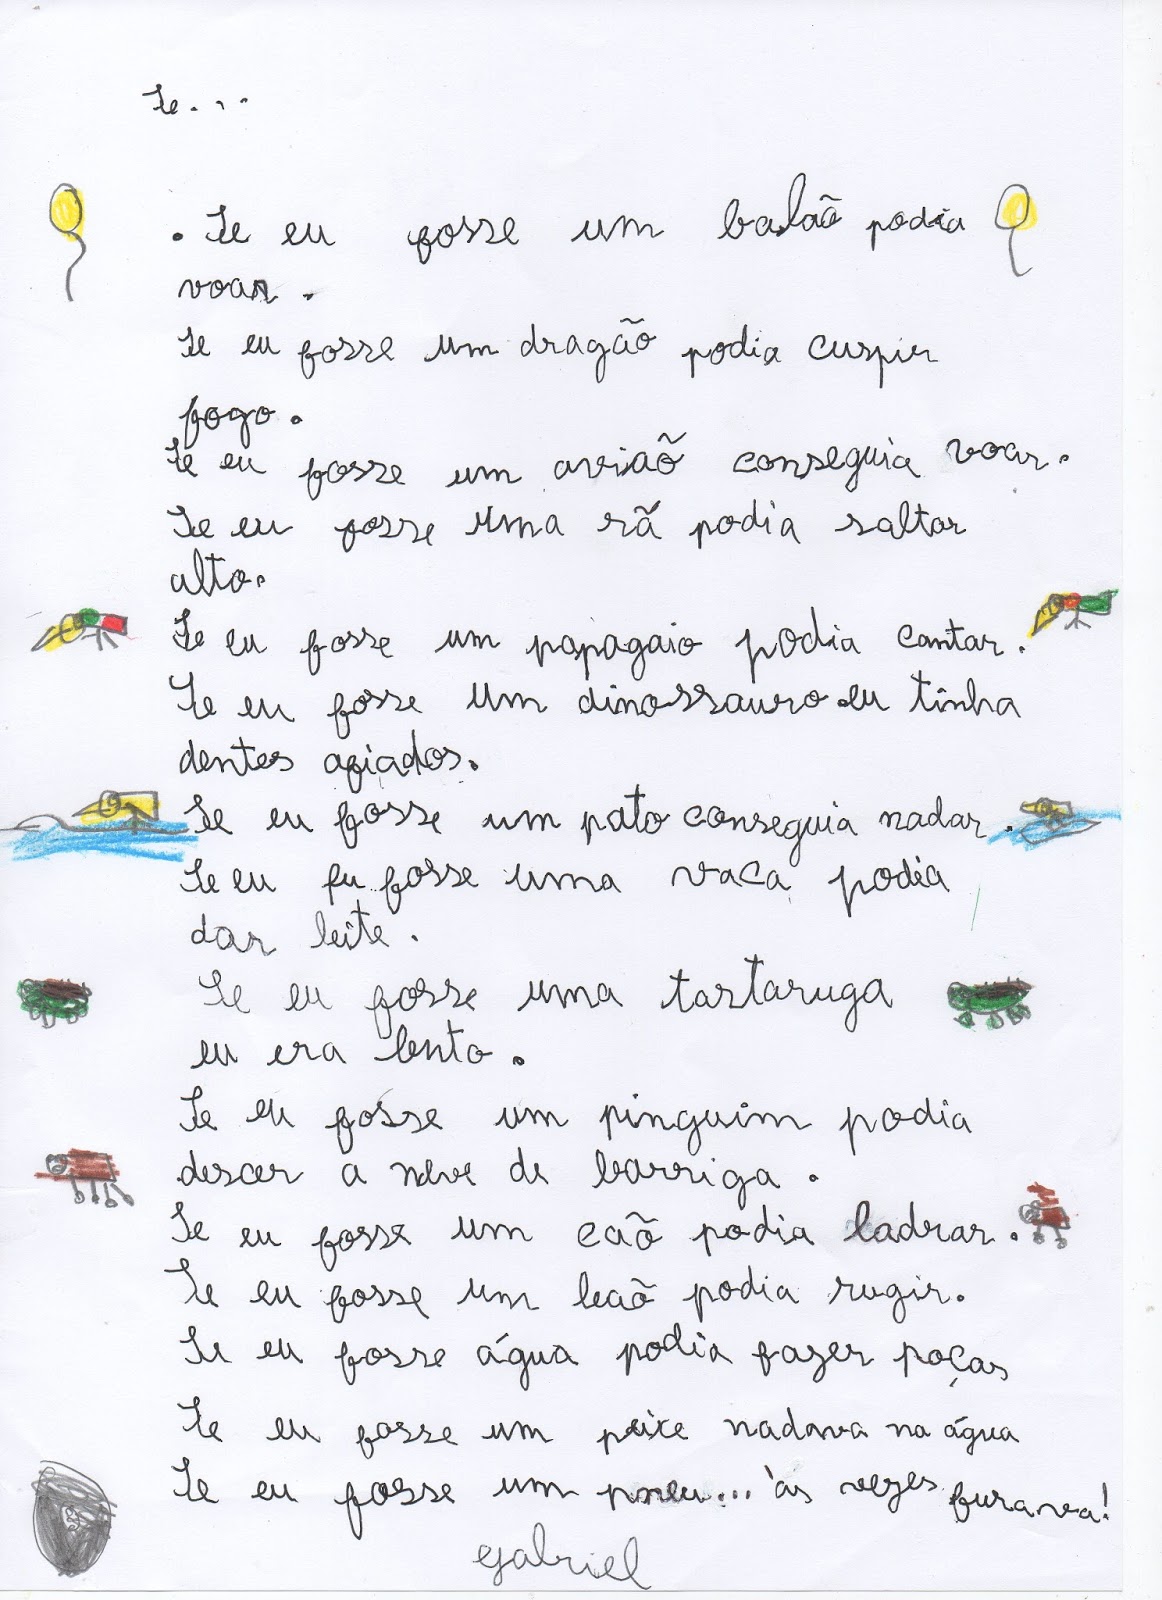 Se...
. Se eu fosse um balão podia
voar.
Se eu fosse um dragão podia cuspir
fogo.
Se eu fosse um avião conseguia voar.
Se eu fosse uma rã podia saltar
alto.
Se eu fosse um papagaio podia cantar.
Se eu fosse um dinossauro eu tinha
dentes afiados.
Se eu fosse um pato conseguia nadar.
Se eu eu fosse uma vaca podia
dar leite.
Se eu fosse uma tartaruga
eu era lento.
Se eu fosse um pinguim podia
descer a neve de barriga.
Se eu fosse um cão podia ladrar.
Se eu fosse um leão podia rugir.
Se eu fosse água podia fazer poças
Se eu fosse um peixe nadava na água
Se eu fosse um pneu... às vezes furava!
Gabriel